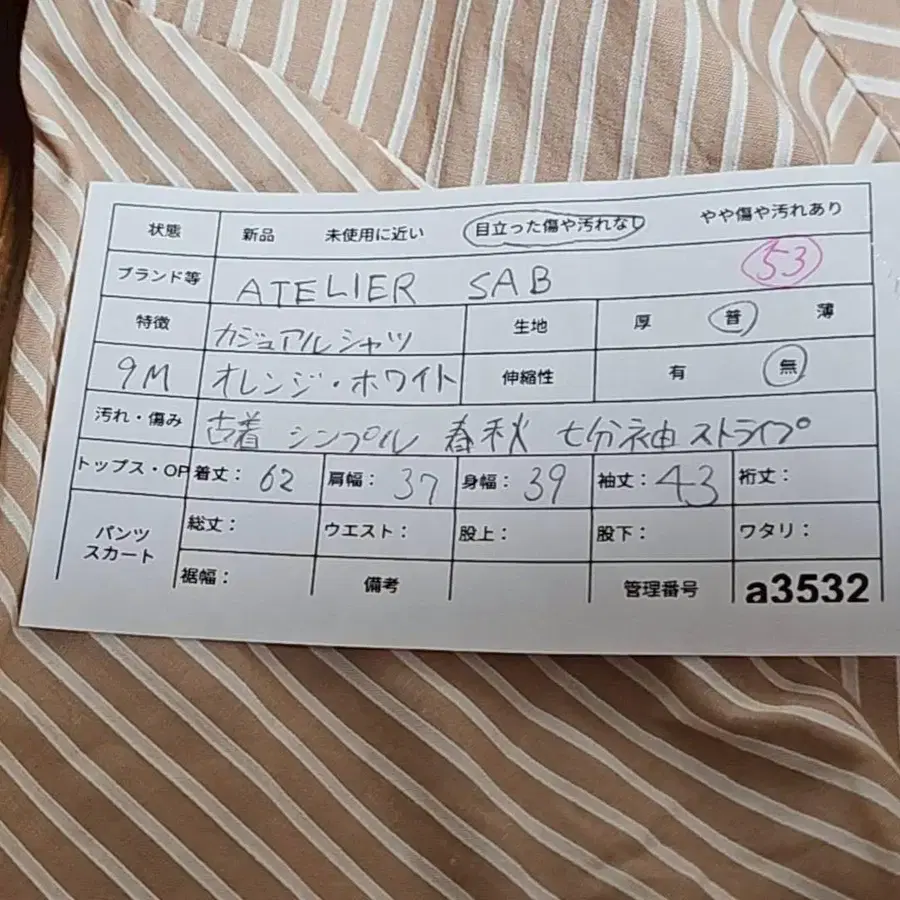 状態 新品 未使用に近い 目立った傷や汚れなし やや傷や汚れあり
ブランド等 ATELIER SAB 53
特徴 カジュアルシャツ 生地 厚 普 薄
9M オレンジ・ホワイト 伸縮性 有 無
汚れ・傷み 古着 シンプル 春秋 七分袖 ストライプ
トップス・OP 着丈: 62 肩幅: 37 身幅: 39 袖丈: 43 裄丈:
パンツ スカート 総丈: ウエスト: 股上: 股下: ワタリ:
裾幅: 備考 管理番号 a3532